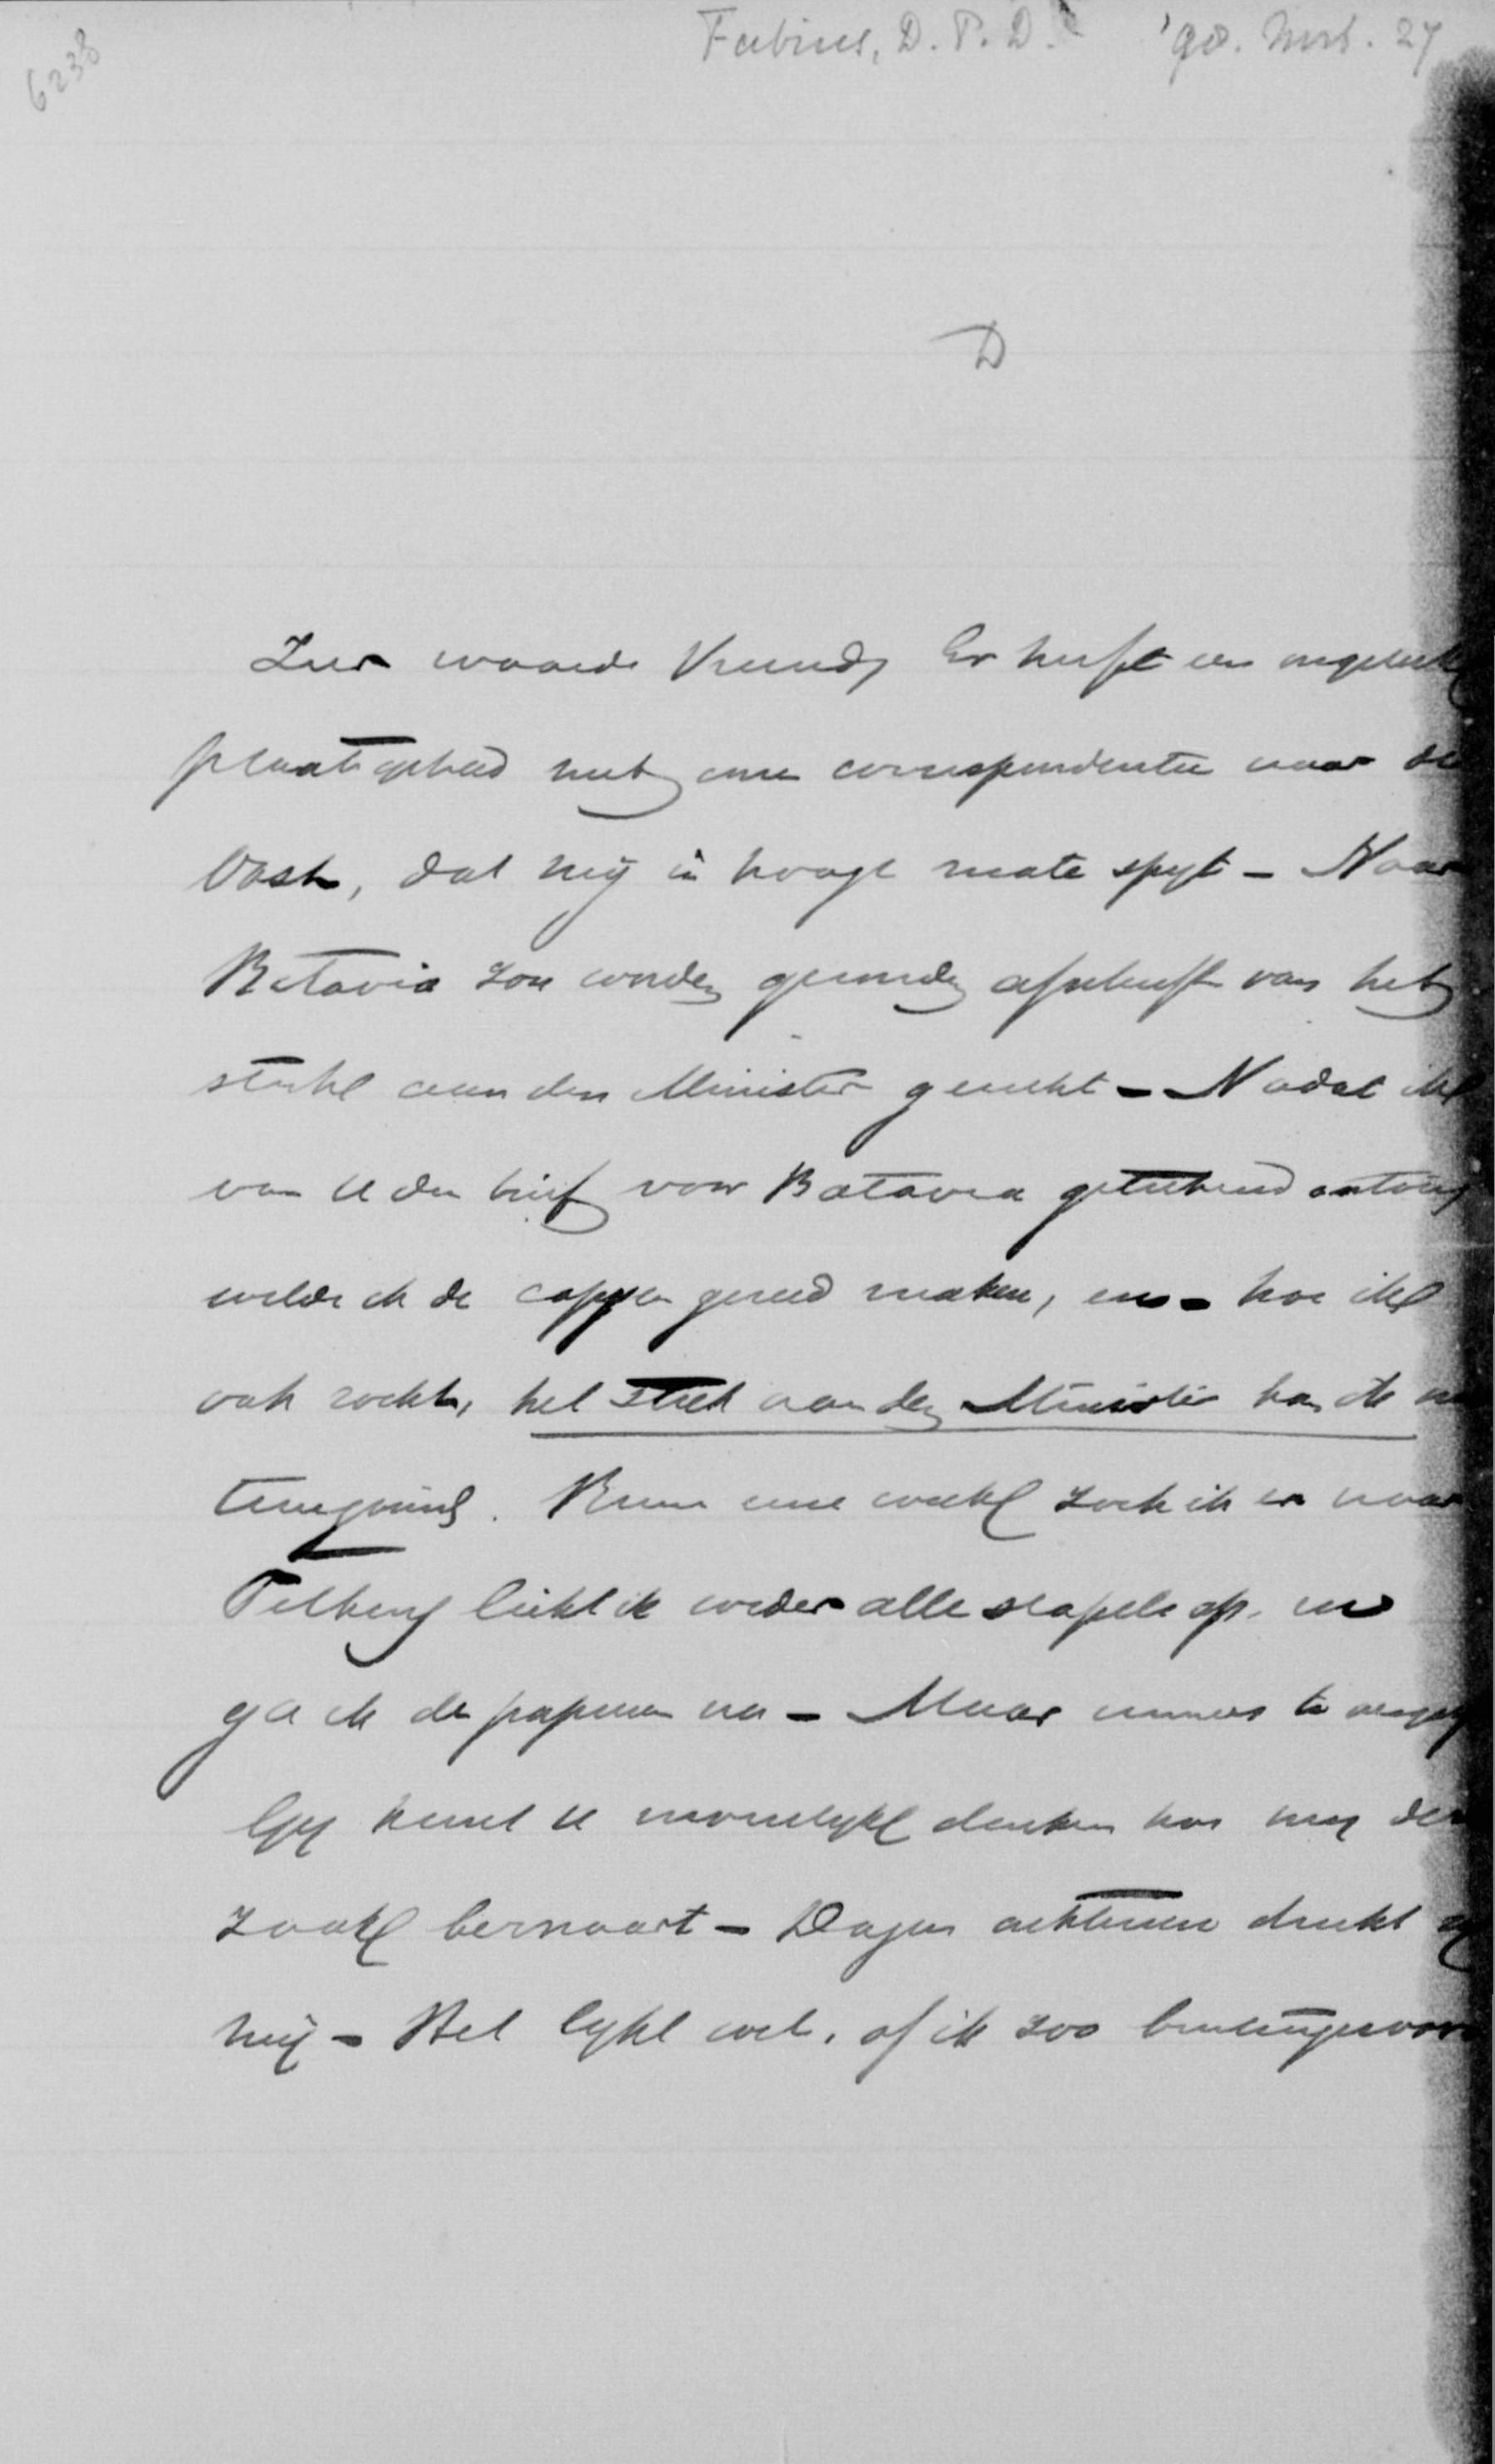 6238
Fabius, D. P. D. '90. Mrt. 27
D
Zeer waarde Vriend, Er heeft een ongeluk
plaats gehad met onze correspondentie naar de
Oost, dat mij in hooge mate spijt – Naar
Batavia zou worden gezonden afschrift van het
stuk aan den Minister gericht – Nadat ik
van U den brief voor Batavia geteekend ontving
wilde ik de copyen gereed maken, en – hoe ik
ook zocht, het stuk aan den Minister kan ik
. Ruim eene week zoek ik er naar
Telkens licht ik weder alle stapels op, en
ga ik de papieren na – Maar immers te
Gij kunt U moeielijk denken hoe mij de
zaak bezwaart – Dagen achtereen drukt
mij – Het lijkt wel, of ik zoo